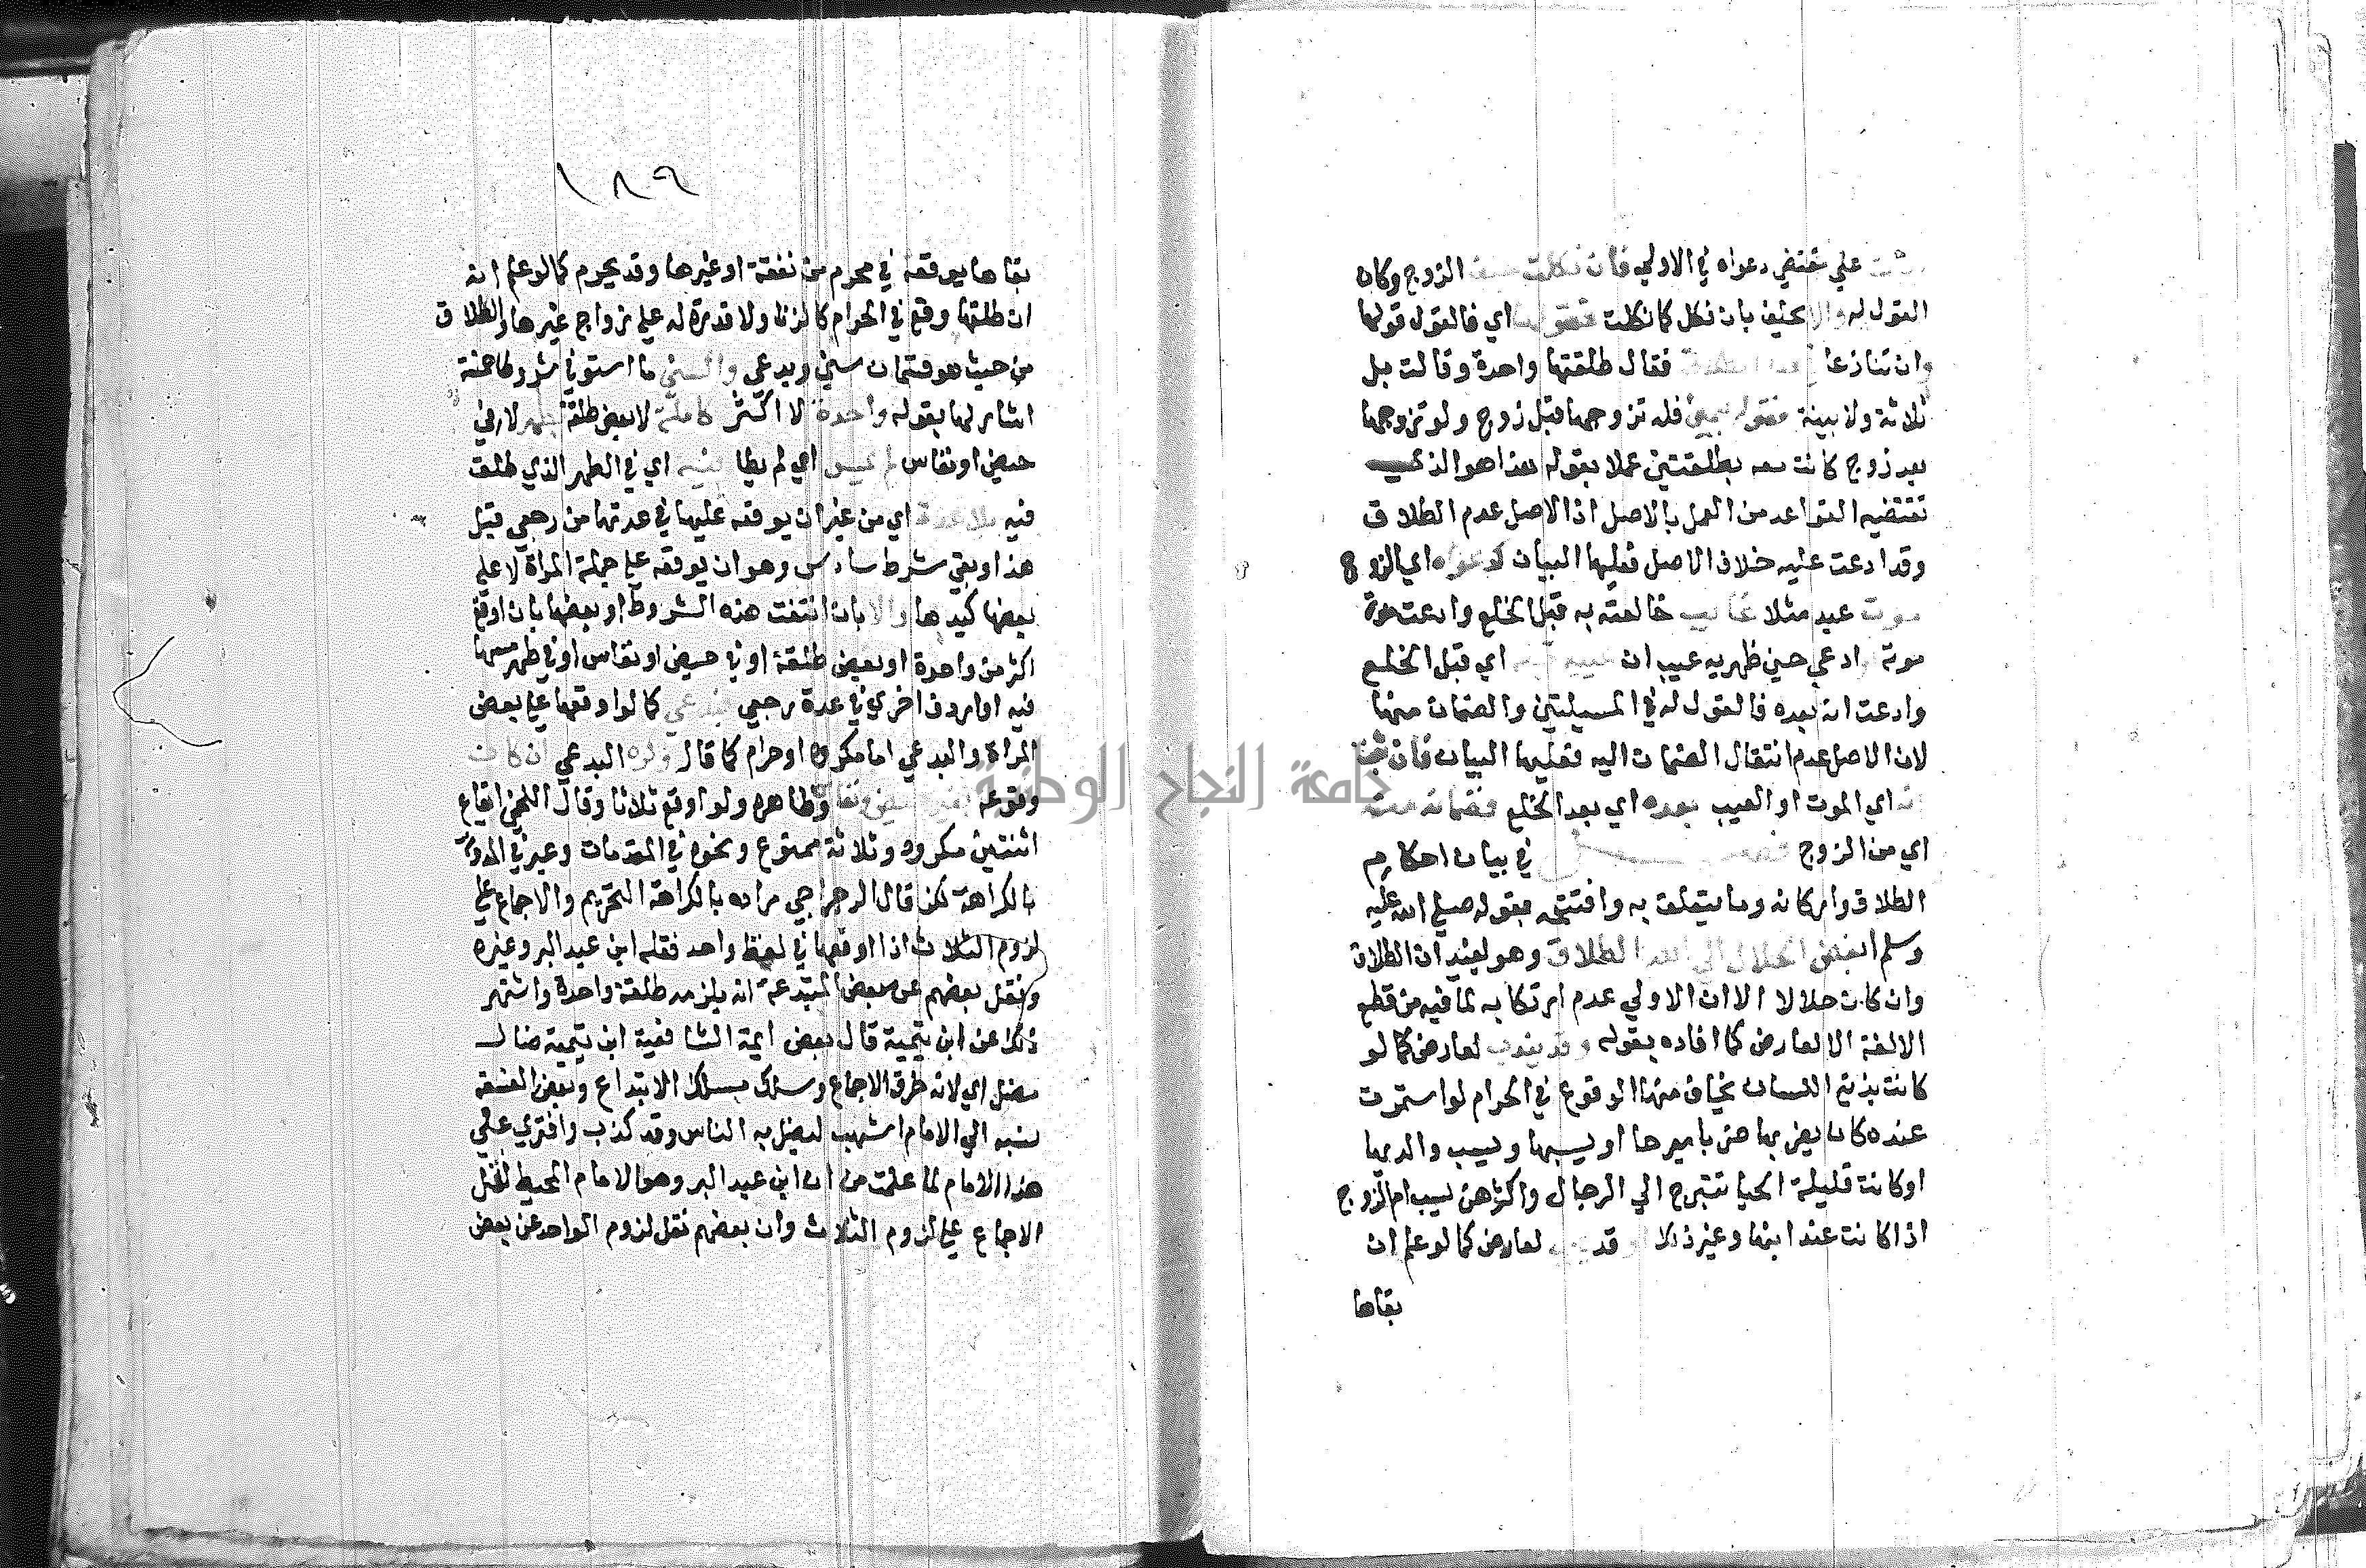 علي مقتضي دعواه في الاولي فان نكلت حلف الزوج وكان
القول له والا يحلف بان نكل كما نكلت فقولها اي فالقول قولها
وان تنازعا فقال طلقتها واحدة وقالت بل
ثلاثة ولا بينة فقوله بيمين فله تزوجها قبل زوج ولو تزوجها
بعد زوج كانت معه بطلقتين عملا بقوله هذا هو الذي
تقتضيه القواعد من العمل بالاصل اذ الاصل عدم الطلاق
وقد ادعت عليه خلاف الاصل فعليها البيان كدعواه اي الزوج
موت عبد مثلا غايب خالعته به قبل الخلع وادعت هي
موته ادعي حين ظهر به عيب ان عيبه قبله اي قبل الخلع
وادعت انه بعده فالقول له في المسيلتين والضمان منها
لان الاصل عدم انتقال الضمان اليه فعليها البيان فان ثبتا
انه اي الموت او العيب بعده اي بعد الخلع فضمانه منه
اي من الزوج فصل في بيان احكام
الطلاق واركانه وما يتعلق به وافتتحه بقوله صلي الله عليه
وسلم ابغض الحلال الي الله الطلاق وهو يفيد ان الطلاق
وان كان حلالا الا ان الاولي عدم ارتكابه لما فيه من قطع
الالفة الا لعارض كما افاده بقوله وقد يندب لعارض كما لو
كانت بذية اللسان يخاف منها الوقوع في الحرام لو استمرت
عنده كان يضربها ضربا مبرحا او يسبها ويسب والديها
او كانت قليلة الحيا تتبرج الي الرجال واكثرهن يسب ام الزوج
اذا كانت عند ابنها وغير ذلك قد لعارض كما لو علم ان
بقاها
١٨٩
بقاها يوقعه في محرم من نفقة او غيرها وقد يحرم كما لو علم انه
ان طلقها وقع في الحرام كالزنا ولا قدرة له علي زواج غيرها والطلاق
من حيث هو قسمان سني وبدعي والسني ما استوفي شروطا خمسة
اشار لها بقوله واحدة لا اكثر كاملة لا بعض طلقة بطهر لا في
حيض او نفاس لم يمس اي لم يطا فيه اي في الطهر الذي طلق
فيه بلا عدة اي من غير ان يوقعه عليها في عدتها من رجعي قبل
هذا وبقي شرط سادس وهو ان يوقعه علي جملة المراة لا علي
بعضها كيدها والا بان انتفت هذه الشروط او بعضها بان اوقع
اكثر من واحدة او بعض طلقة او في حيض او نفاس او في طهر مسها
فيه او اردف اخري في عدة رجعي فبدعي كما لو اوقعها علي بعض
المراة والبدعي اما مكروه او حرام كما قال وكره البدعي ان كان
وقوعه بغير حيض ونفاس وظاهره ولو اوقع ثلاثا وقال اللخمي ايقاع
اثنتين مكروه وثلاثة ممنوع ونحوه في المقدمات وعبر في المدونة
بالكراهة لكن قال الرجراجي مراده بالكراهة التحريم والاجماع علي
لزوم الثلاث اذا اوقعها في لفظ واحد نقله ابن عبد البر وغيره
ونقل بعضهم عن بعض المبتدعة انه يلزمه طلقة واحدة واشتهر
ذلك عن ابن تيمية قال بعض ايمة الشافعية ابن تيمية ضال
مضل اي لانه خرق الاجماع وسلك مسلك الابتداع وبعض الفسقة
نسبه الي الامام اشهب ليضل به الناس وقد كذب وافتري علي
هذا الامام لما علمت من ان ابن عبد البر وهو الامام المحيط نقل
الاجماع علي لزوم الثلاث وان بعضهم نقل لزوم الواحد عن بعض
جامعة النجاح الوطنية